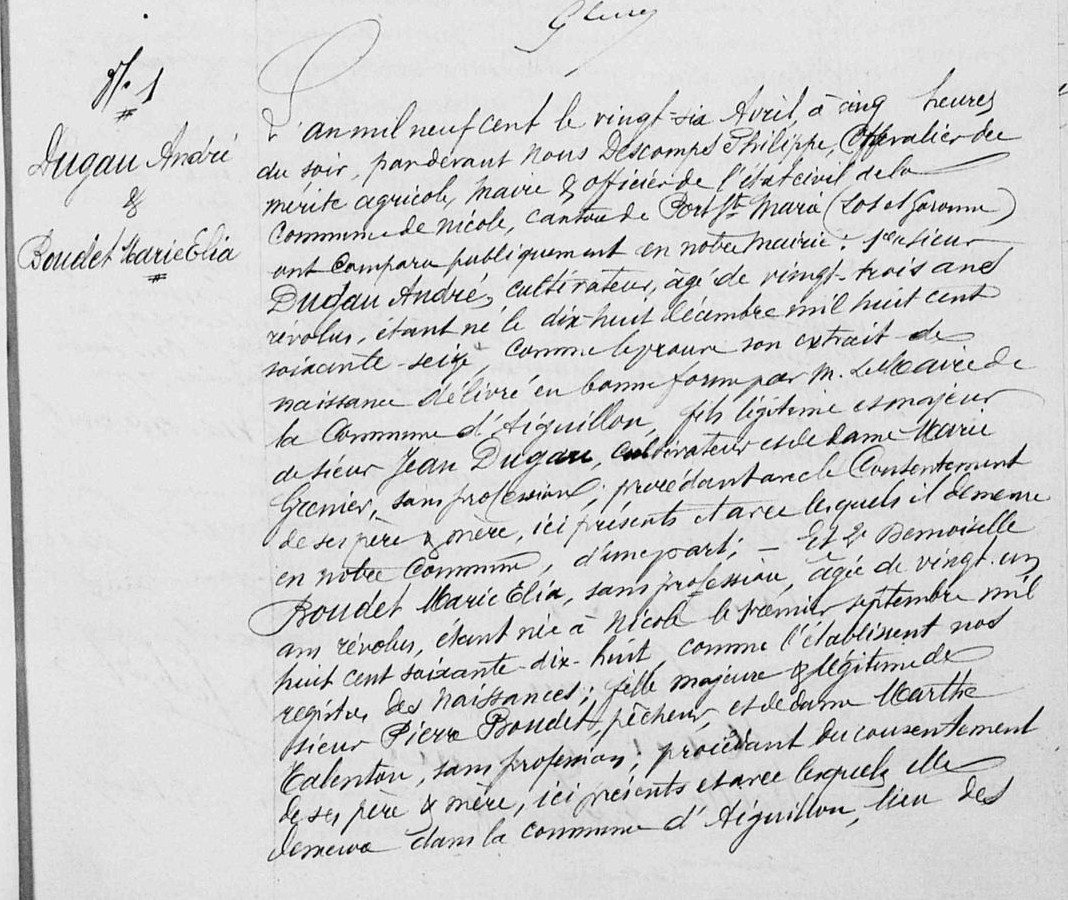 N. 1
Dugau André
&
Boudet Marie Elia
L'an mil neuf cent le vingt-six Avril, à cinq heures
du soir, par devant Nous Descomps Philippe, Chevalier du
mérite agricole, Maire & officier de l'état civil de la
Commune de Nicole, canton de Port Ste Marie (Lot et Garonne)
ont comparu publiquement en notre mairie: 1ent sieur
Dugau André, cultivateur, âgé de vingt-trois ans
révolus, étant né le dix-huit décembre mil huit cent
soixante-seize, comme le prouve son extrait de
naissance délivré en bonne forme par M. Le Maire de
la Commune d'Aiguillon, fils légitime et majeur
de sieur Jean Dugau, cultivateur et de dame Marie
Grenier, sans profession; procédant avec le Consentement
de ses père & mère, ici présents et avec lesquels il demeure
en notre Commune, d'une part; – Et 2e Demoiselle
Boudet Marie Elia, sans profession, âgée de vingt-un
ans révolus, étant née à Nicole le premier septembre mil
huit cent soixante-dix-huit, comme l'établissent nos
registres des Naissances; fille majeure & légitime de
sieur Pierre Boudet, pêcheur, et de dame Marthe
Talenton, sans profession; procédant du consentement
de ses père & mère, ici présents et avec lesquels elle
demeure dans la commune d'Aiguillon, lieu des